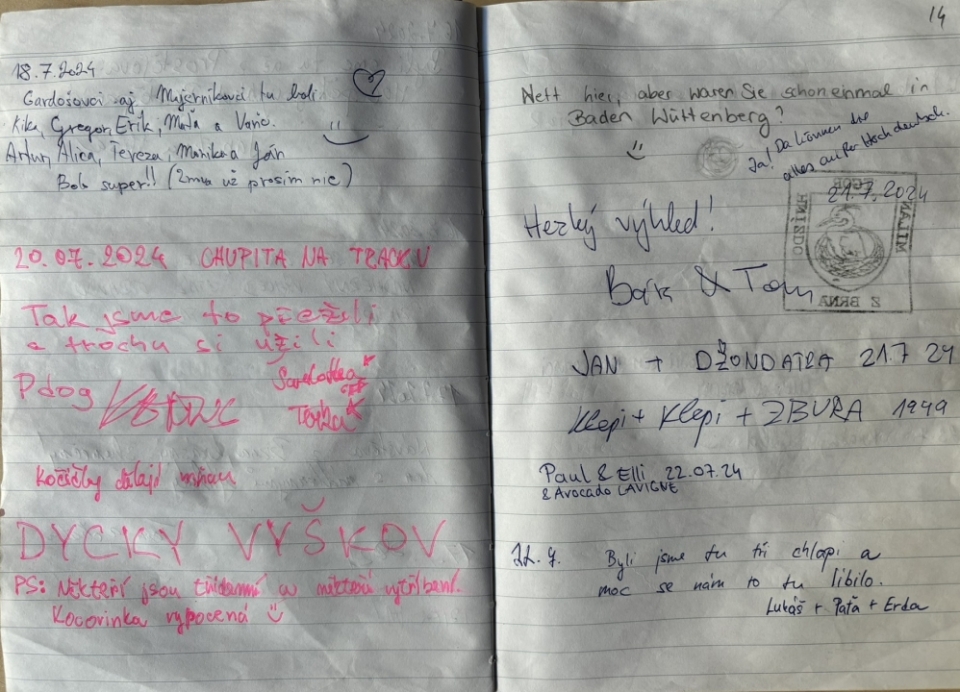 18.7.2024
Gardošovci aj Majerníkovci tu boli
Kika, Gregor, Erik, Maťa a
Artur, Alica, Tereza, Monika a Ján
Bolo super!! (2mu už prosím nic)
20.07.2024 CHUPITA NA TRACKU
Tak jsme to přežili
a trochu si užili
Pdog
Kočičky dělají mňau
DYCKY VYŠKOV
PS: Někteří jsou třídenní a někteří vytříbení.
Kocovinka vypocená
14
Nett hier, aber waren Sie schon einmal in
Baden Württenberg?
Ja! Da können die
alles außer Hochdeutsch.
21.7.2024
Hezký výhled!
Bára & Tom
Z BRNA
JAN + DŽONDAIRA 21.7 24
Klepi + Klepi + ZBURA 1949
Paul & Elli 22.07.24
& Avocado LAVIGNE
22.7. Byli jsme tu tři chlapi a
moc se nám to tu líbilo.
Lukáš + Paťa + Erda